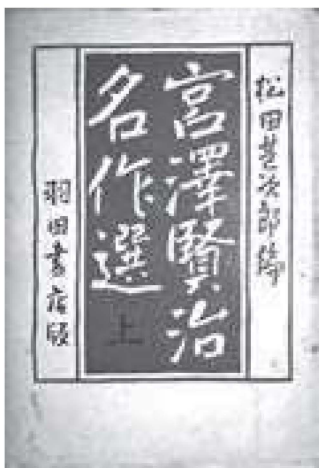 松田甚次郎編
宮澤賢治
名作選
上
羽田書店版